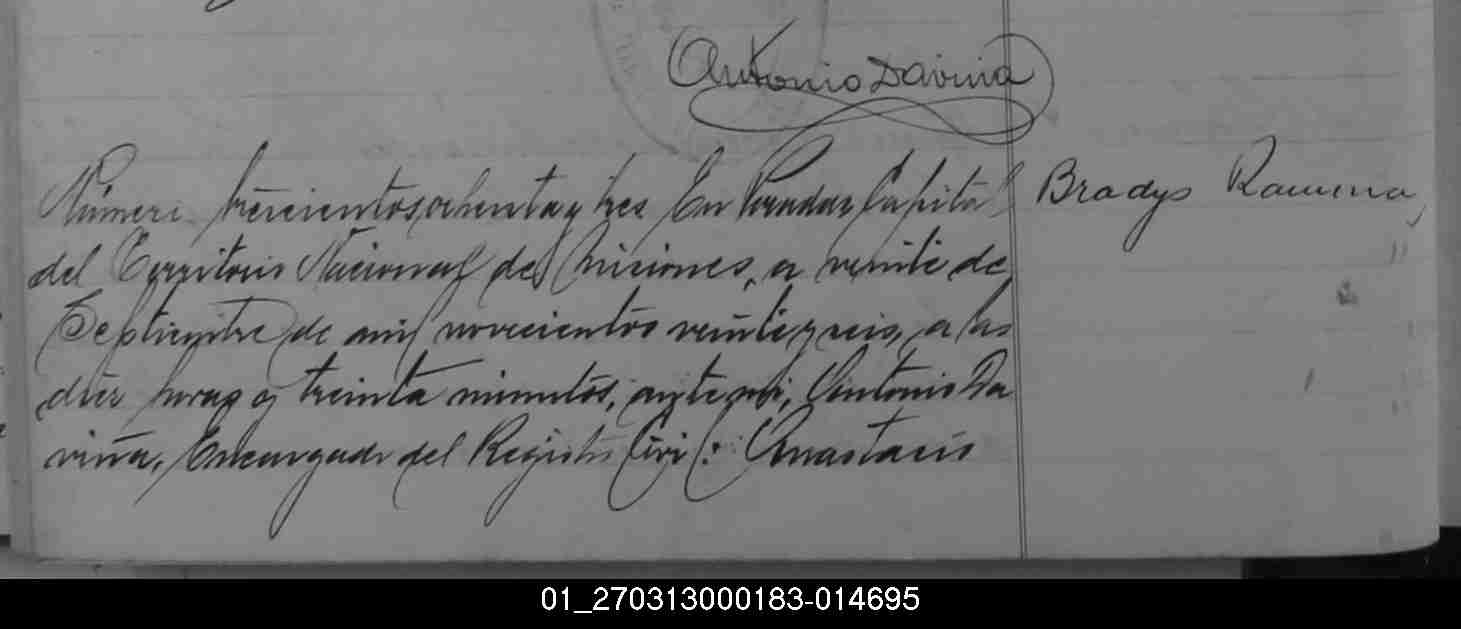 Antonio Daviña
Número trescientos ochenta y tres En Posadas, Capital
Bradys Ramona,
del Territorio Nacional de Misiones, a veinte de
Septiembre de mil novecientos veintiyseis, a las
diez horas y treinta minutos, ante mi, Antonio Da
viña, Encargado del Registro Civil: Anastacio
01_270313000183-014695